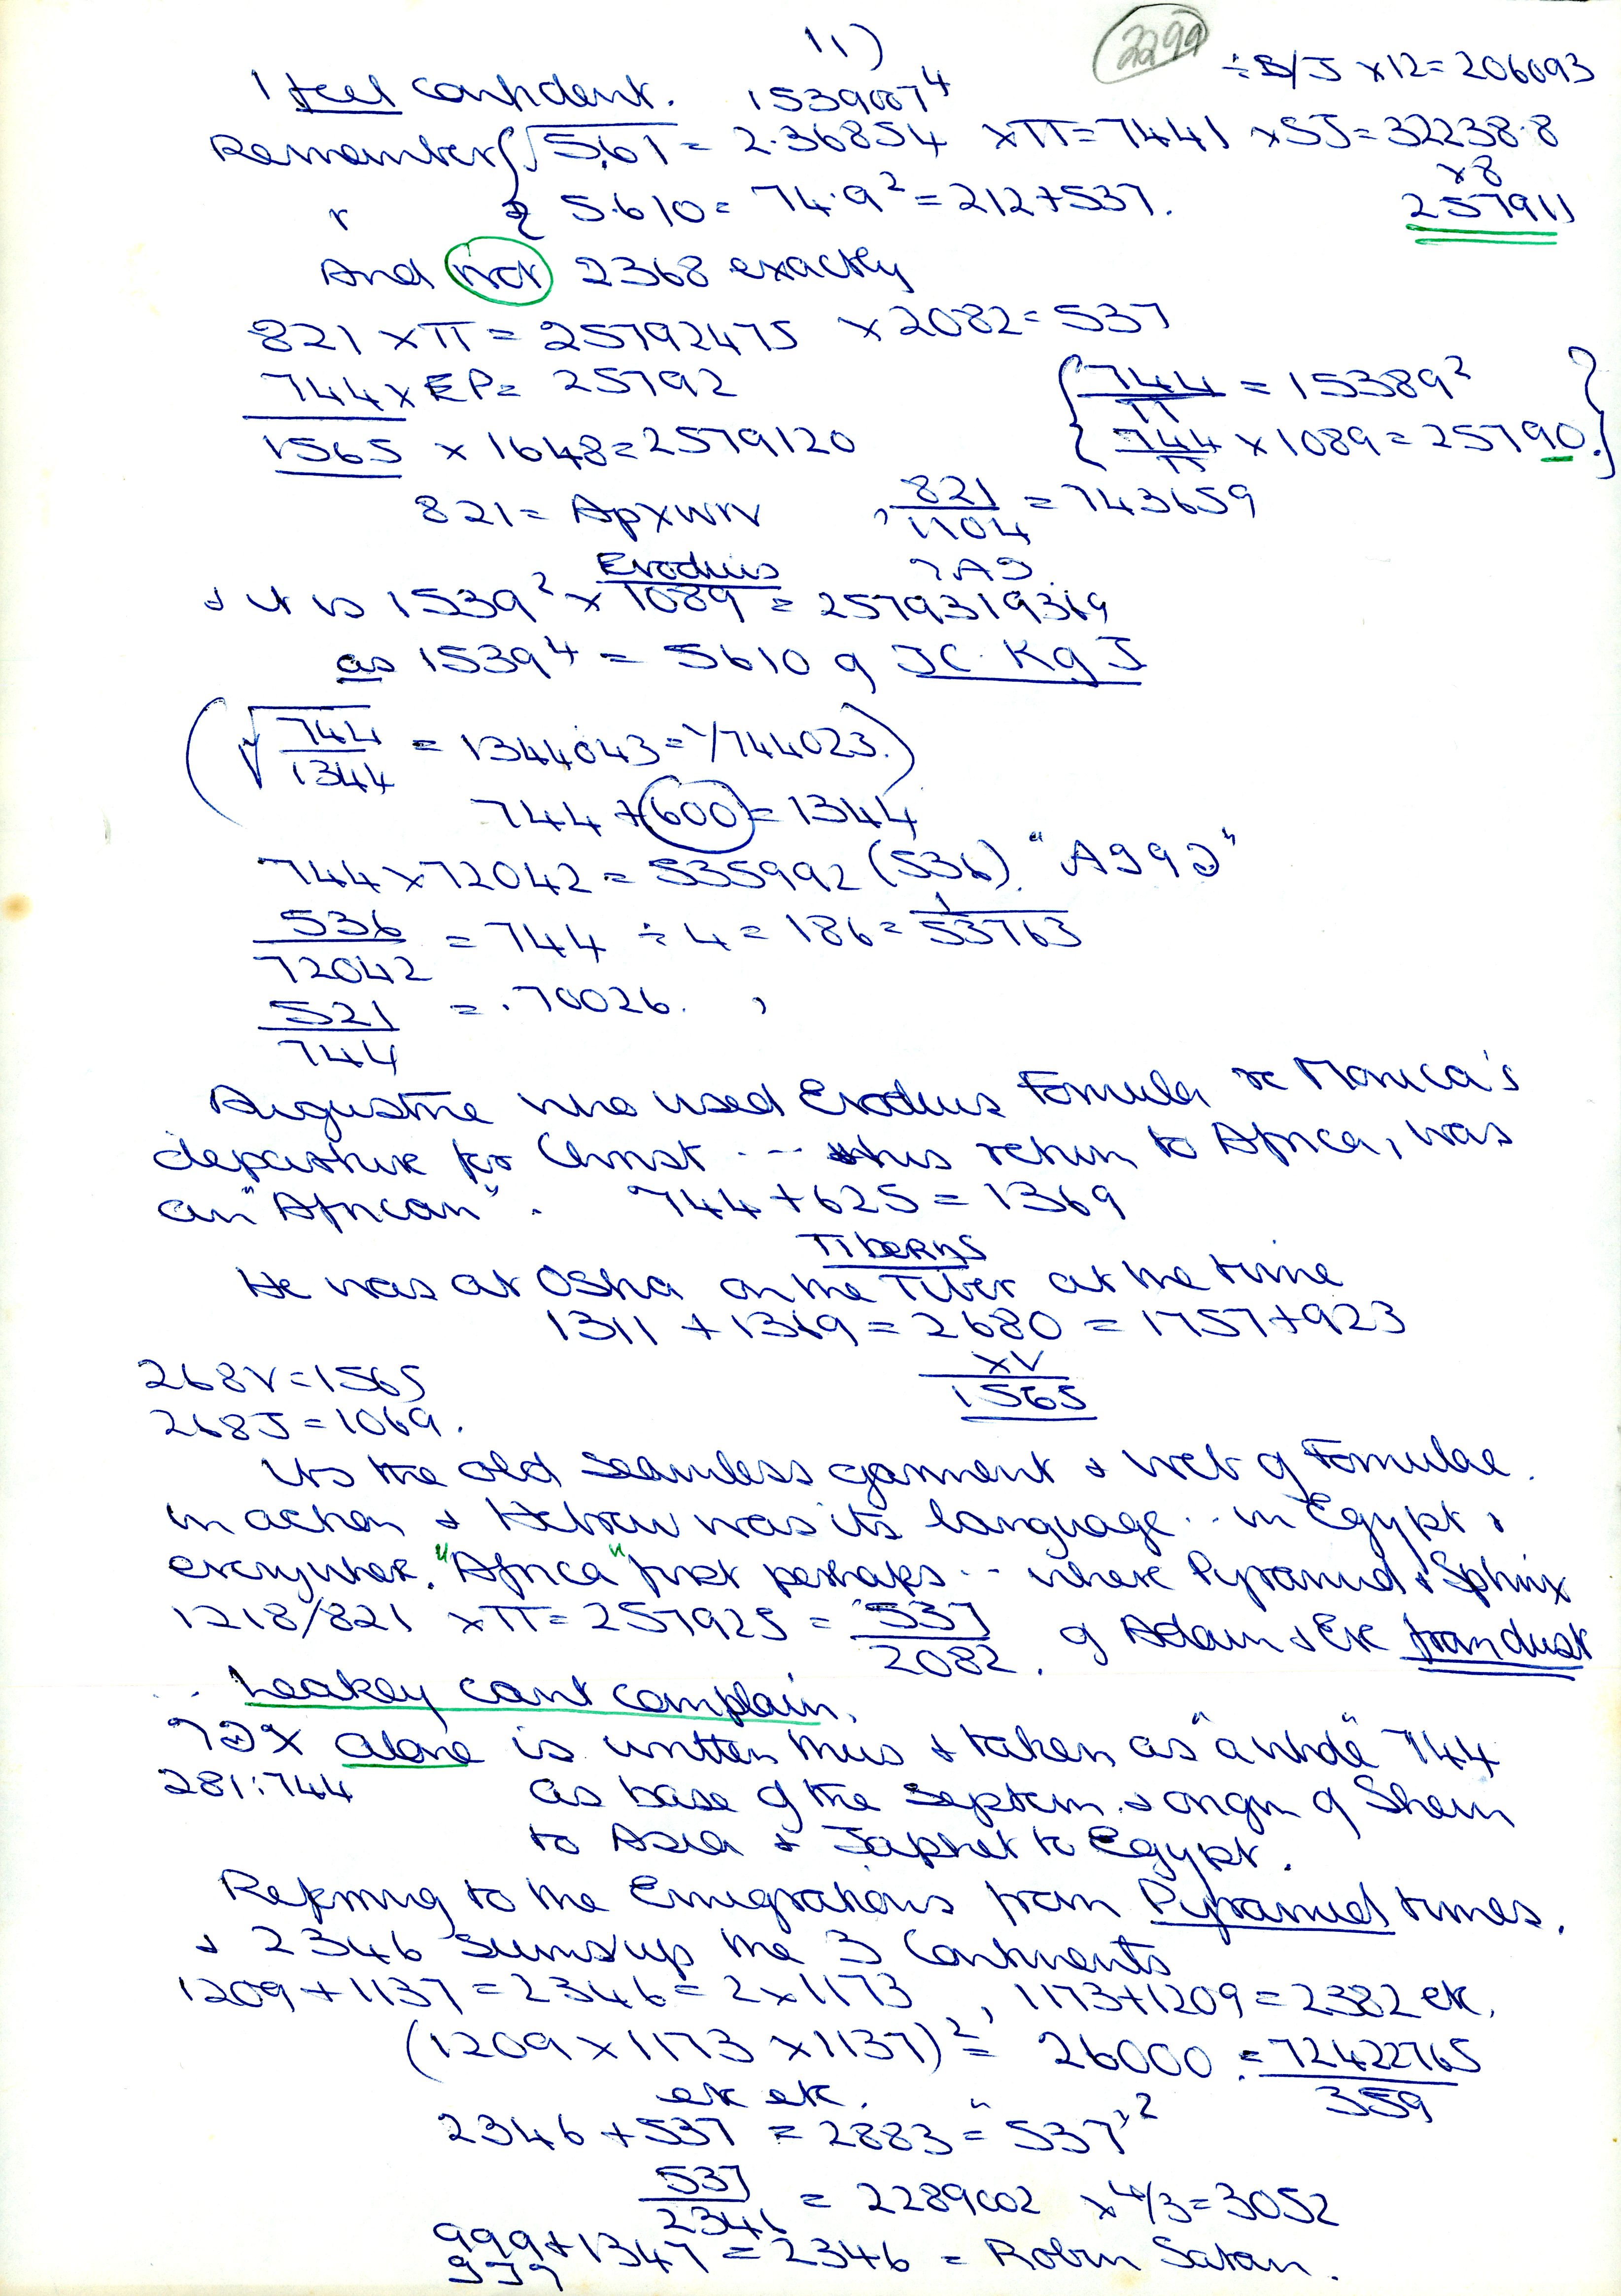 11)
2299
÷ B/J ×12 = 206093
I feel confident. 1539007⁴
Remember { √5,61 = 2.36854 ×π = 7441 ×SJ = 32238.8
×8
r { 5.610 = 74.9² = 212+537. 257911
And not 2368 exactly
821 ×π = 25792475 ×2082 = 537
744 × EP = 25792 { 744/π = 15389² }
1565 × 1648 = 2579120 { 744/π × 1089 = 25790. }
821 = ApXWN , 821/1104 = 743659
Exodus
& it is 1539² × 1089 = 2579319369
as 1539⁴ = 5610 g JC. Kg J
( √744/1344 = 1344043 = 1/744023. )
744 + 600 = 1344
744 × 72042 = 535992 (536).
536/72042 = 744 ÷ 4 = 186 = 1/53763
521/744 = .70026. ,
Augustine who used Exodus Formula re Monica's
departure for Christ --- & his return to Africa, was
an "African". 744 + 625 = 1369
TIberys
He was at Ostia on the Tiber at the time
1311 + 1369 = 2680 = 1757+923
268V = 1565 ×V
268J = 1069. 1565
Its the old seamless garment & web of Formulae.
in action & Hebrew was its language .. in Egypt &
everywhere. "Africa" first perhaps -- where Pyramid & Sphinx
1218/821 ×π = 257925 = 537/2082. g Adam & Eve from dust
.. Leakey cant complain.
alone is written thus & taken as "a whole" 744
281:744 as base of the Septem. & origin of Shem
to Asia & Japhet to Egypt.
Referring to the Emigrations from Pyramid times.
& 2346 sums up the 3 Continents
1209 + 1137 = 2346 = 2×1173 , 1173+1209 = 2382 etc.
(1209 × 1173 × 1137)² = 26000. = 72422765/359
etc etc.
2346 + 537 = 2883 = "537"²
537/2346 = 2289002 ×4/3 = 3052
999 + 1347 = 2346 = Robin Satan.